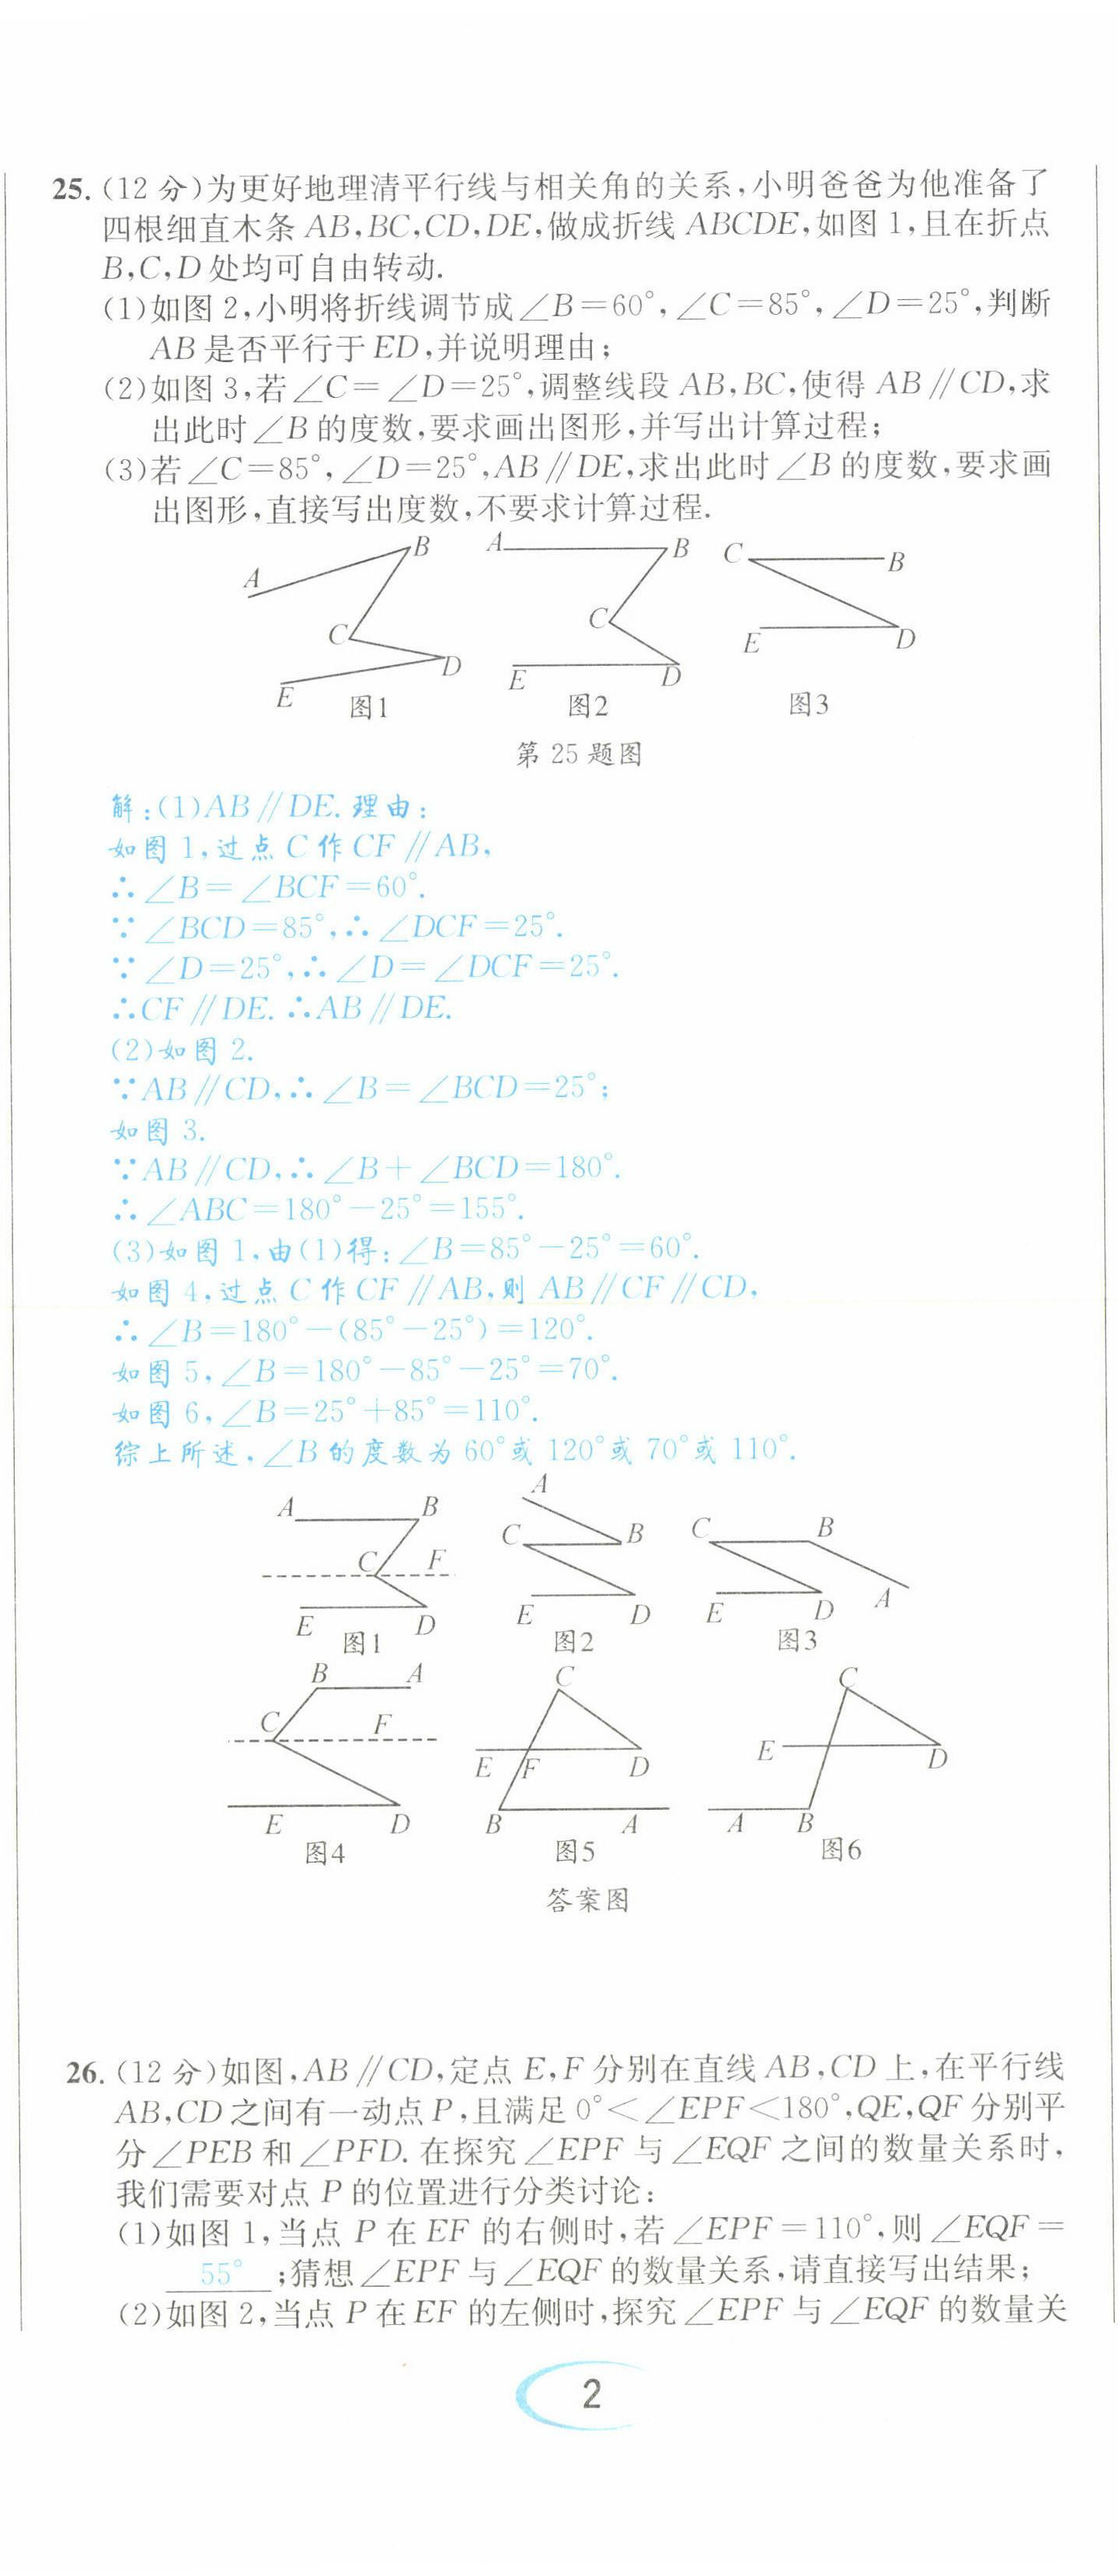 25. (12 分)为更好地理清平行线与相关角的关系,小明爸爸为他准备了
四根细直木条 AB,BC,CD,DE,做成折线 ABCDE,如图 1,且在折点
B,C,D 处均可自由转动.
(1)如图 2,小明将折线调节成∠B=60°,∠C=85°,∠D=25°,判断
AB 是否平行于 ED,并说明理由;
(2)如图 3,若∠C=∠D=25°,调整线段 AB,BC,使得 AB∥CD,求
出此时∠B 的度数,要求画出图形,并写出计算过程;
(3)若∠C=85°,∠D=25°,AB∥DE,求出此时∠B 的度数,要求画
出图形,直接写出度数,不要求计算过程.
A B C D E 图1
A B C E D 图2
C B E D 图3
第 25 题图
解:(1)AB∥DE.理由:
如图 1,过点 C 作 CF∥AB,
∴∠B=∠BCF=60°.
∵∠BCD=85°,∴∠DCF=25°.
∵∠D=25°,∴∠D=∠DCF=25°.
∴CF∥DE.∴AB∥DE.
(2)如图 2.
∵AB∥CD,∴∠B=∠BCD=25°;
如图 3.
∵AB∥CD,∴∠B+∠BCD=180°.
∴∠ABC=180°-25°=155°.
(3)如图 1,由(1)得:∠B=85°-25°=60°.
如图 4,过点 C 作 CF∥AB,则 AB∥CF∥CD,
∴∠B=180°-(85°-25°)=120°.
如图 5,∠B=180°-85°-25°=70°.
如图 6,∠B=25°+85°=110°.
综上所述,∠B 的度数为 60°或 120°或 70°或 110°.
A B C F E D 图1
A C B E D 图2
C B E D A 图3
B A C F E D 图4
C E F D B A 图5
C E D A B 图6
答案图
26. (12 分)如图,AB∥CD,定点 E,F 分别在直线 AB,CD 上,在平行线
AB,CD 之间有一动点 P,且满足 0°<∠EPF<180°,QE,QF 分别平
分∠PEB 和∠PFD. 在探究∠EPF 与∠EQF 之间的数量关系时,
我们需要对点 P 的位置进行分类讨论:
(1)如图 1,当点 P 在 EF 的右侧时,若∠EPF=110°,则∠EQF=
55° ;猜想∠EPF 与∠EQF 的数量关系,请直接写出结果;
(2)如图 2,当点 P 在 EF 的左侧时,探究∠EPF 与∠EQF 的数量关
2